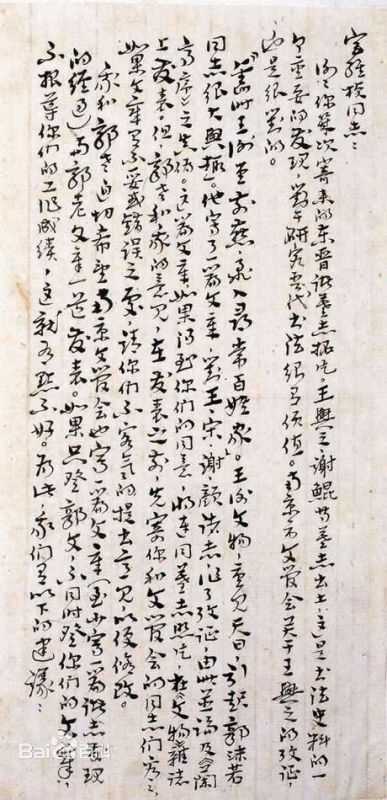 宫维桢同志：
谢谢你几次寄来的东晋诸墓志拓片，王兴之谢鲲等墓志出土，这是书法史料的一
个重要的发现，对于研究晋代书法很有价值。南京市文管会关于王兴之的考证，
也是很对的。
“旧时王谢堂前燕，飞入寻常百姓家”。王谢文物重见天日，引起郭沫若
同志很大兴趣。他写了一篇文章，对王、宋、谢、颜诸志，作了考证，由此并论及兰亭
序之真伪。这篇文章如果得到你们的同意，将连同墓志照片，在文物杂志
上发表。但，郭老和我的意见，在发表之前，先寄你和文管会的同志们
如果文章有不妥或错误之处，请你们不客气的提出意见，以便修改。
我和郭老迫切希望南京文管会也写一篇文章（至少写一篇诸志发现
的经过）与郭老文章一道发表。如果只登郭文，不同时登你们的文章，
不报导你们的工作成绩，这就有点不好。为此，我们有以下的建议：